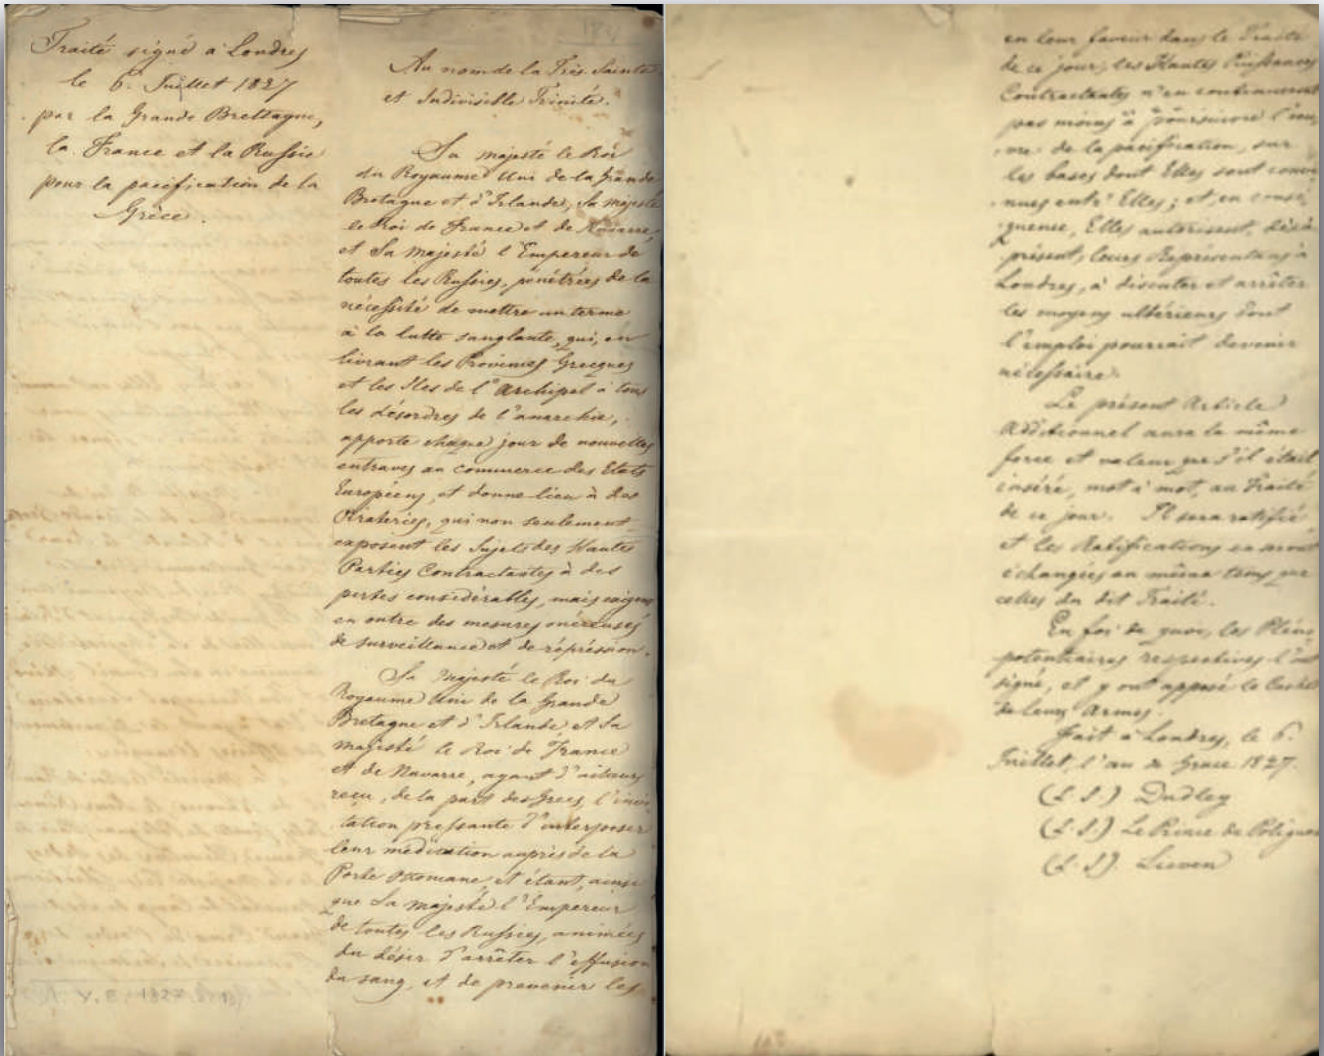 Traité signé à Londres
le 6. Juillet 1827
par la Grande Brettagne,
la France et la Russie
pour la pacification de la
Grèce.
Au nom de la Très Sainte
et Indivisible Trinité.
Sa Majesté le Roi
du Royaume Uni de la Grande
Bretagne et d'Irlande, Sa Majesté
le Roi de France et de Navarre,
et Sa Majesté l'Empereur de
toutes les Russies, pénétrées de la
nécessité de mettre un terme
à la lutte sanglante, qui, en
livrant les Provinces Grecques
et les Iles de l'Archipel à tous
les désordres de l'anarchie,
apporte chaque jour de nouvelles
entraves au commerce des Etats
Européens, et donne lieu à des
Pirateries, qui non seulement
exposent les Sujets des Hautes
Parties Contractantes à des
pertes considérables, mais exigent
en outre des mesures onéreuses
de surveillance et de répression.
Sa Majesté le Roi du
Royaume Uni de la Grande
Bretagne et d'Irlande et Sa
Majesté le Roi de France
et de Navarre, ayant d'ailleurs
reçu, de la part des Grecs, l'invi
tation pressante d'interposer
leur médiation auprès de la
Porte Ottomane, et étant, ainsi
que Sa Majesté l'Empereur
de toutes les Russies, animées
du désir d'arrêter l'effusion
du sang, et de prevenir les
en leur faveur dans le Traité
de ce jour, les Hautes Puissances
Contractantes n'en continueront
pas moins à poursuivre l'œu
vre de la pacification, sur
les bases dont Elles sont conve
nues entr'Elles; et, en consé
quence, Elles autorisent, dès à
présent, leurs Représentans à
Londres, à discuter et arrêter
les moyens ultérieurs dont
l'emploi pourrait devenir
nécessaire.
Le présent Article
Additionnel aura la même
force et valeur que s'il était
inséré, mot à mot, au Traité
de ce jour. Il sera ratifié
et les Ratifications en seront
échangées en même tems que
celles du dit Traité.
En foi de quoi, les Pléni
potentiaires respectives l'ont
signé, et y ont apposé le Cachet
de leurs Armes.
Fait à Londres, le 6.
Juillet, l'an de Grace 1827.
(L.S.) Dudley
(L.S.) Le Prince de Polignac
(L.S.) Lieven